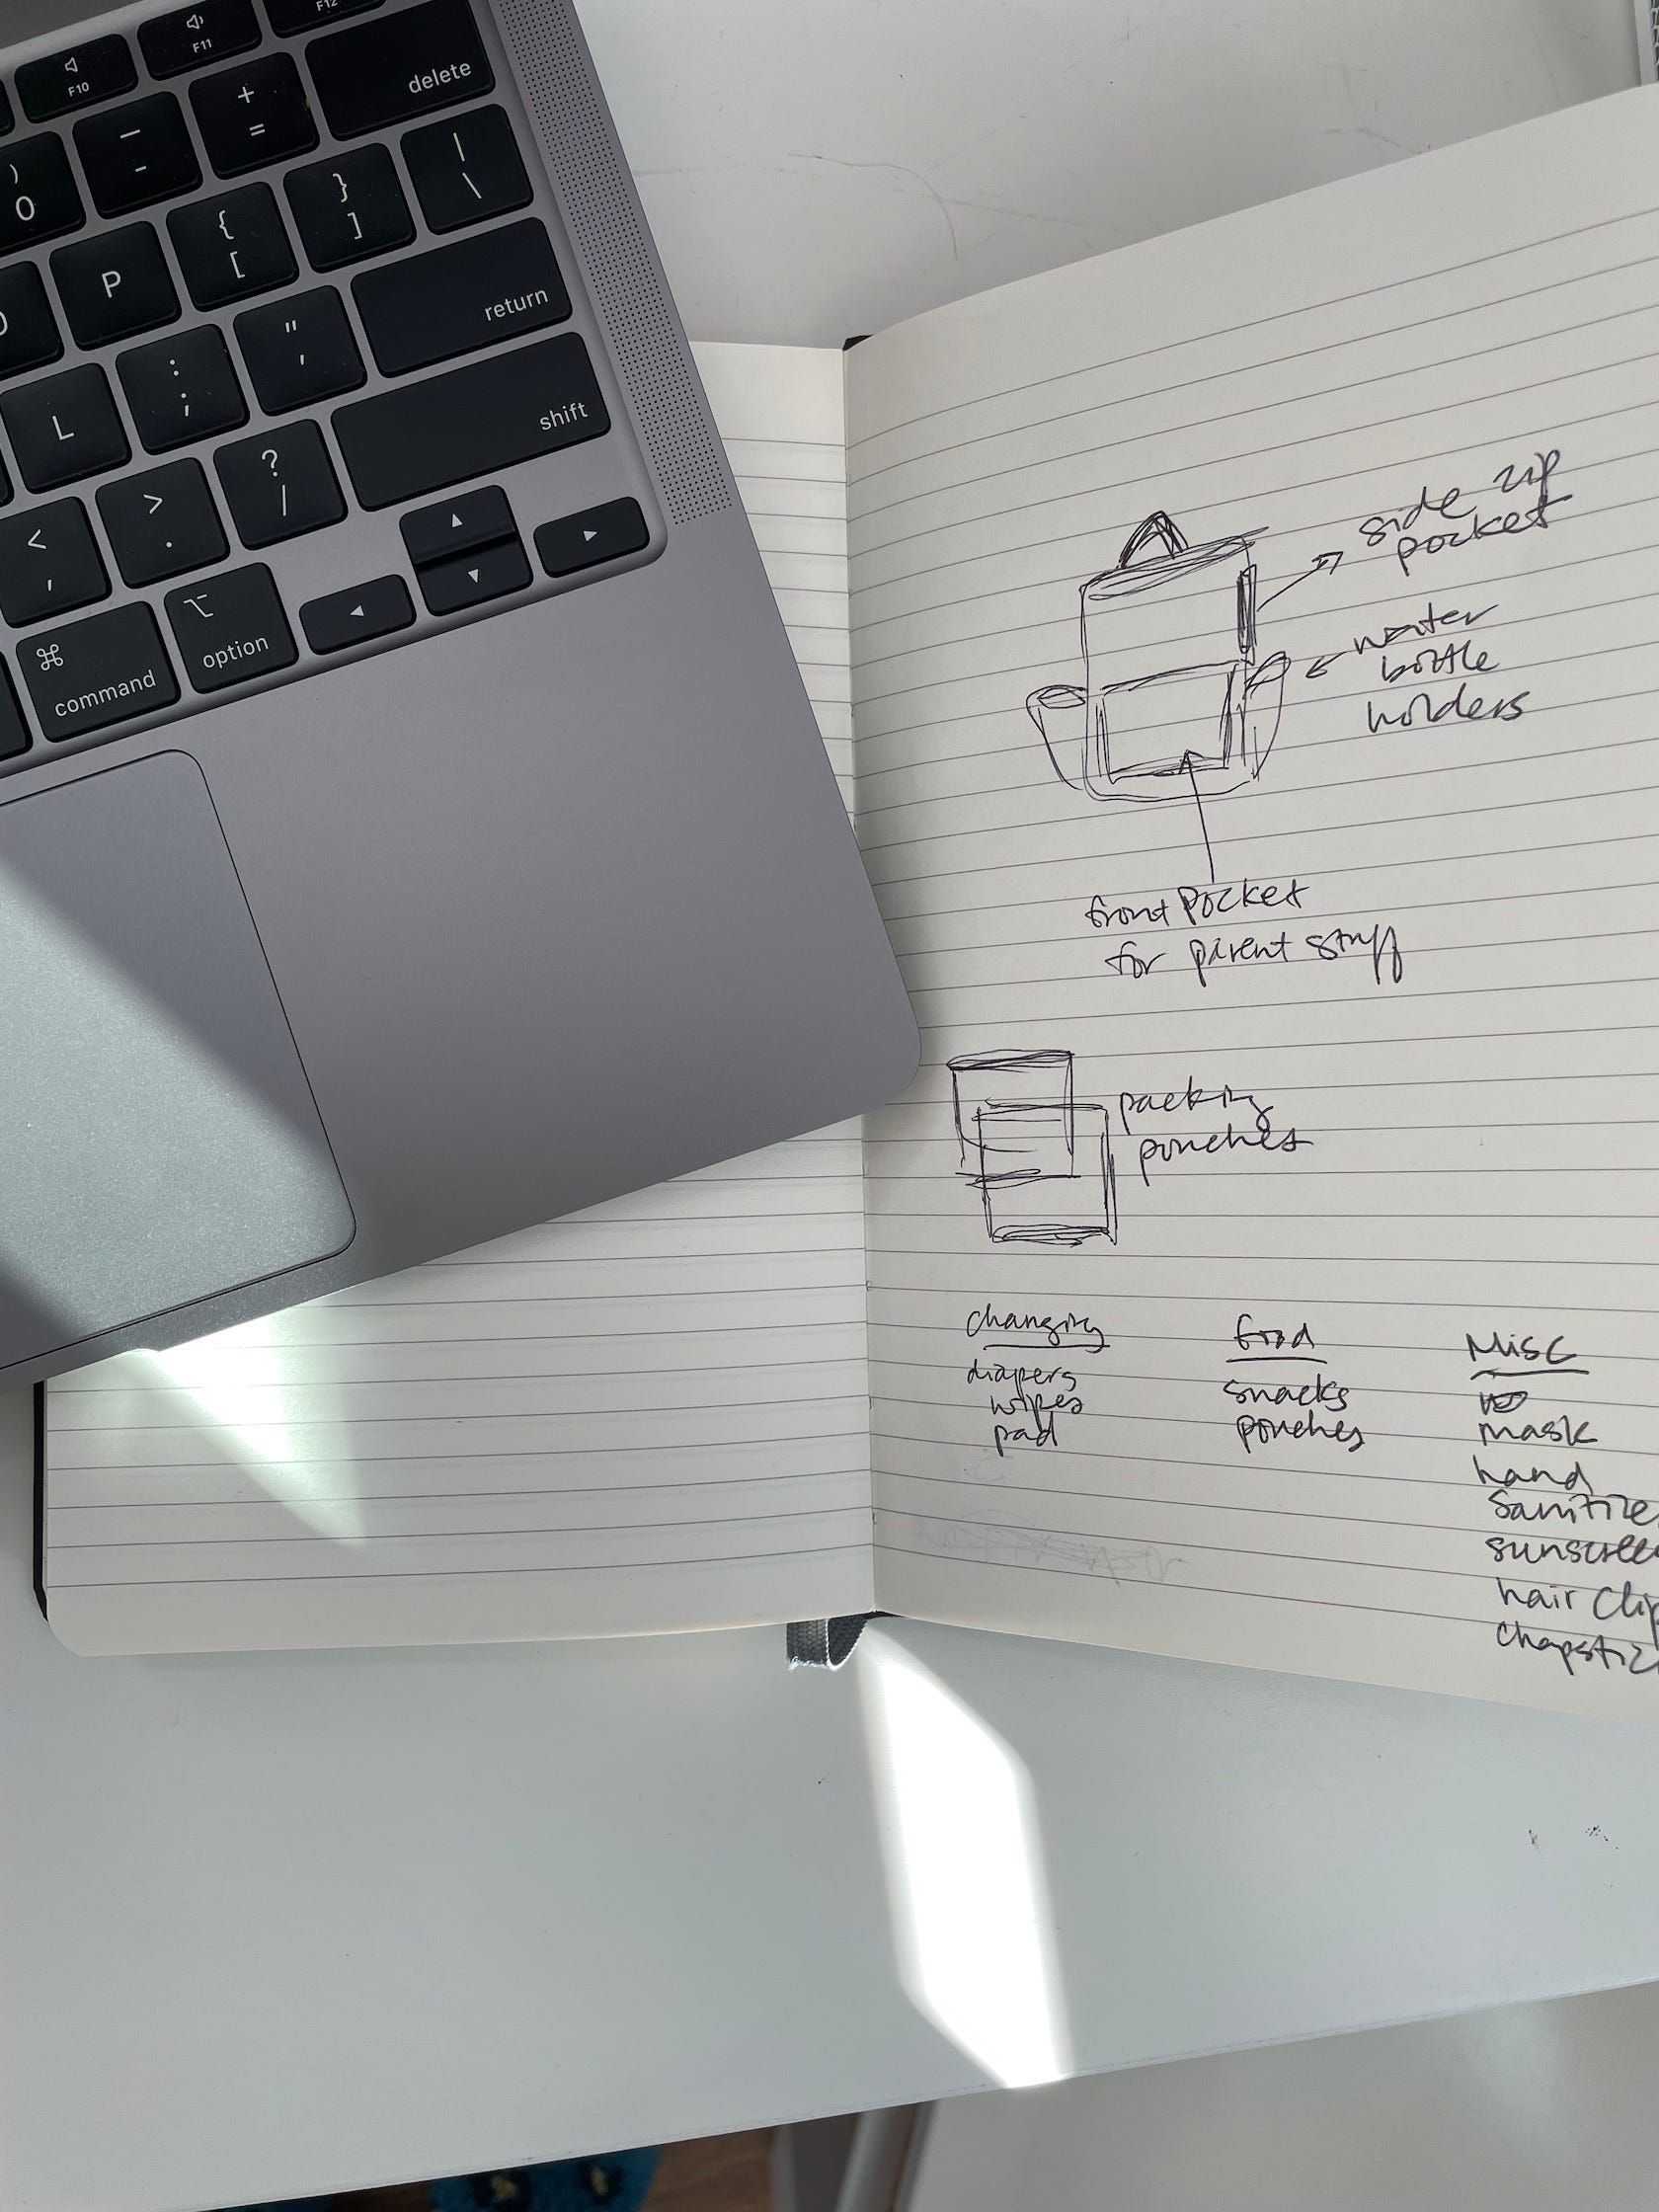 F10
F11
F12
delete
+
=
—
-
)
0
|
\
}
]
{
[
P
return
"
'
:
;
L
shift
?
/
>
.
<
,
option
command
side zip
pocket
water
bottle
holders
front pocket
for parent stuff
packing
pouches
changing
diapers
wipes
pad
food
snacks
pouches
Misc
mask
hand
sanitize
sunscree
hair clip
chapstic